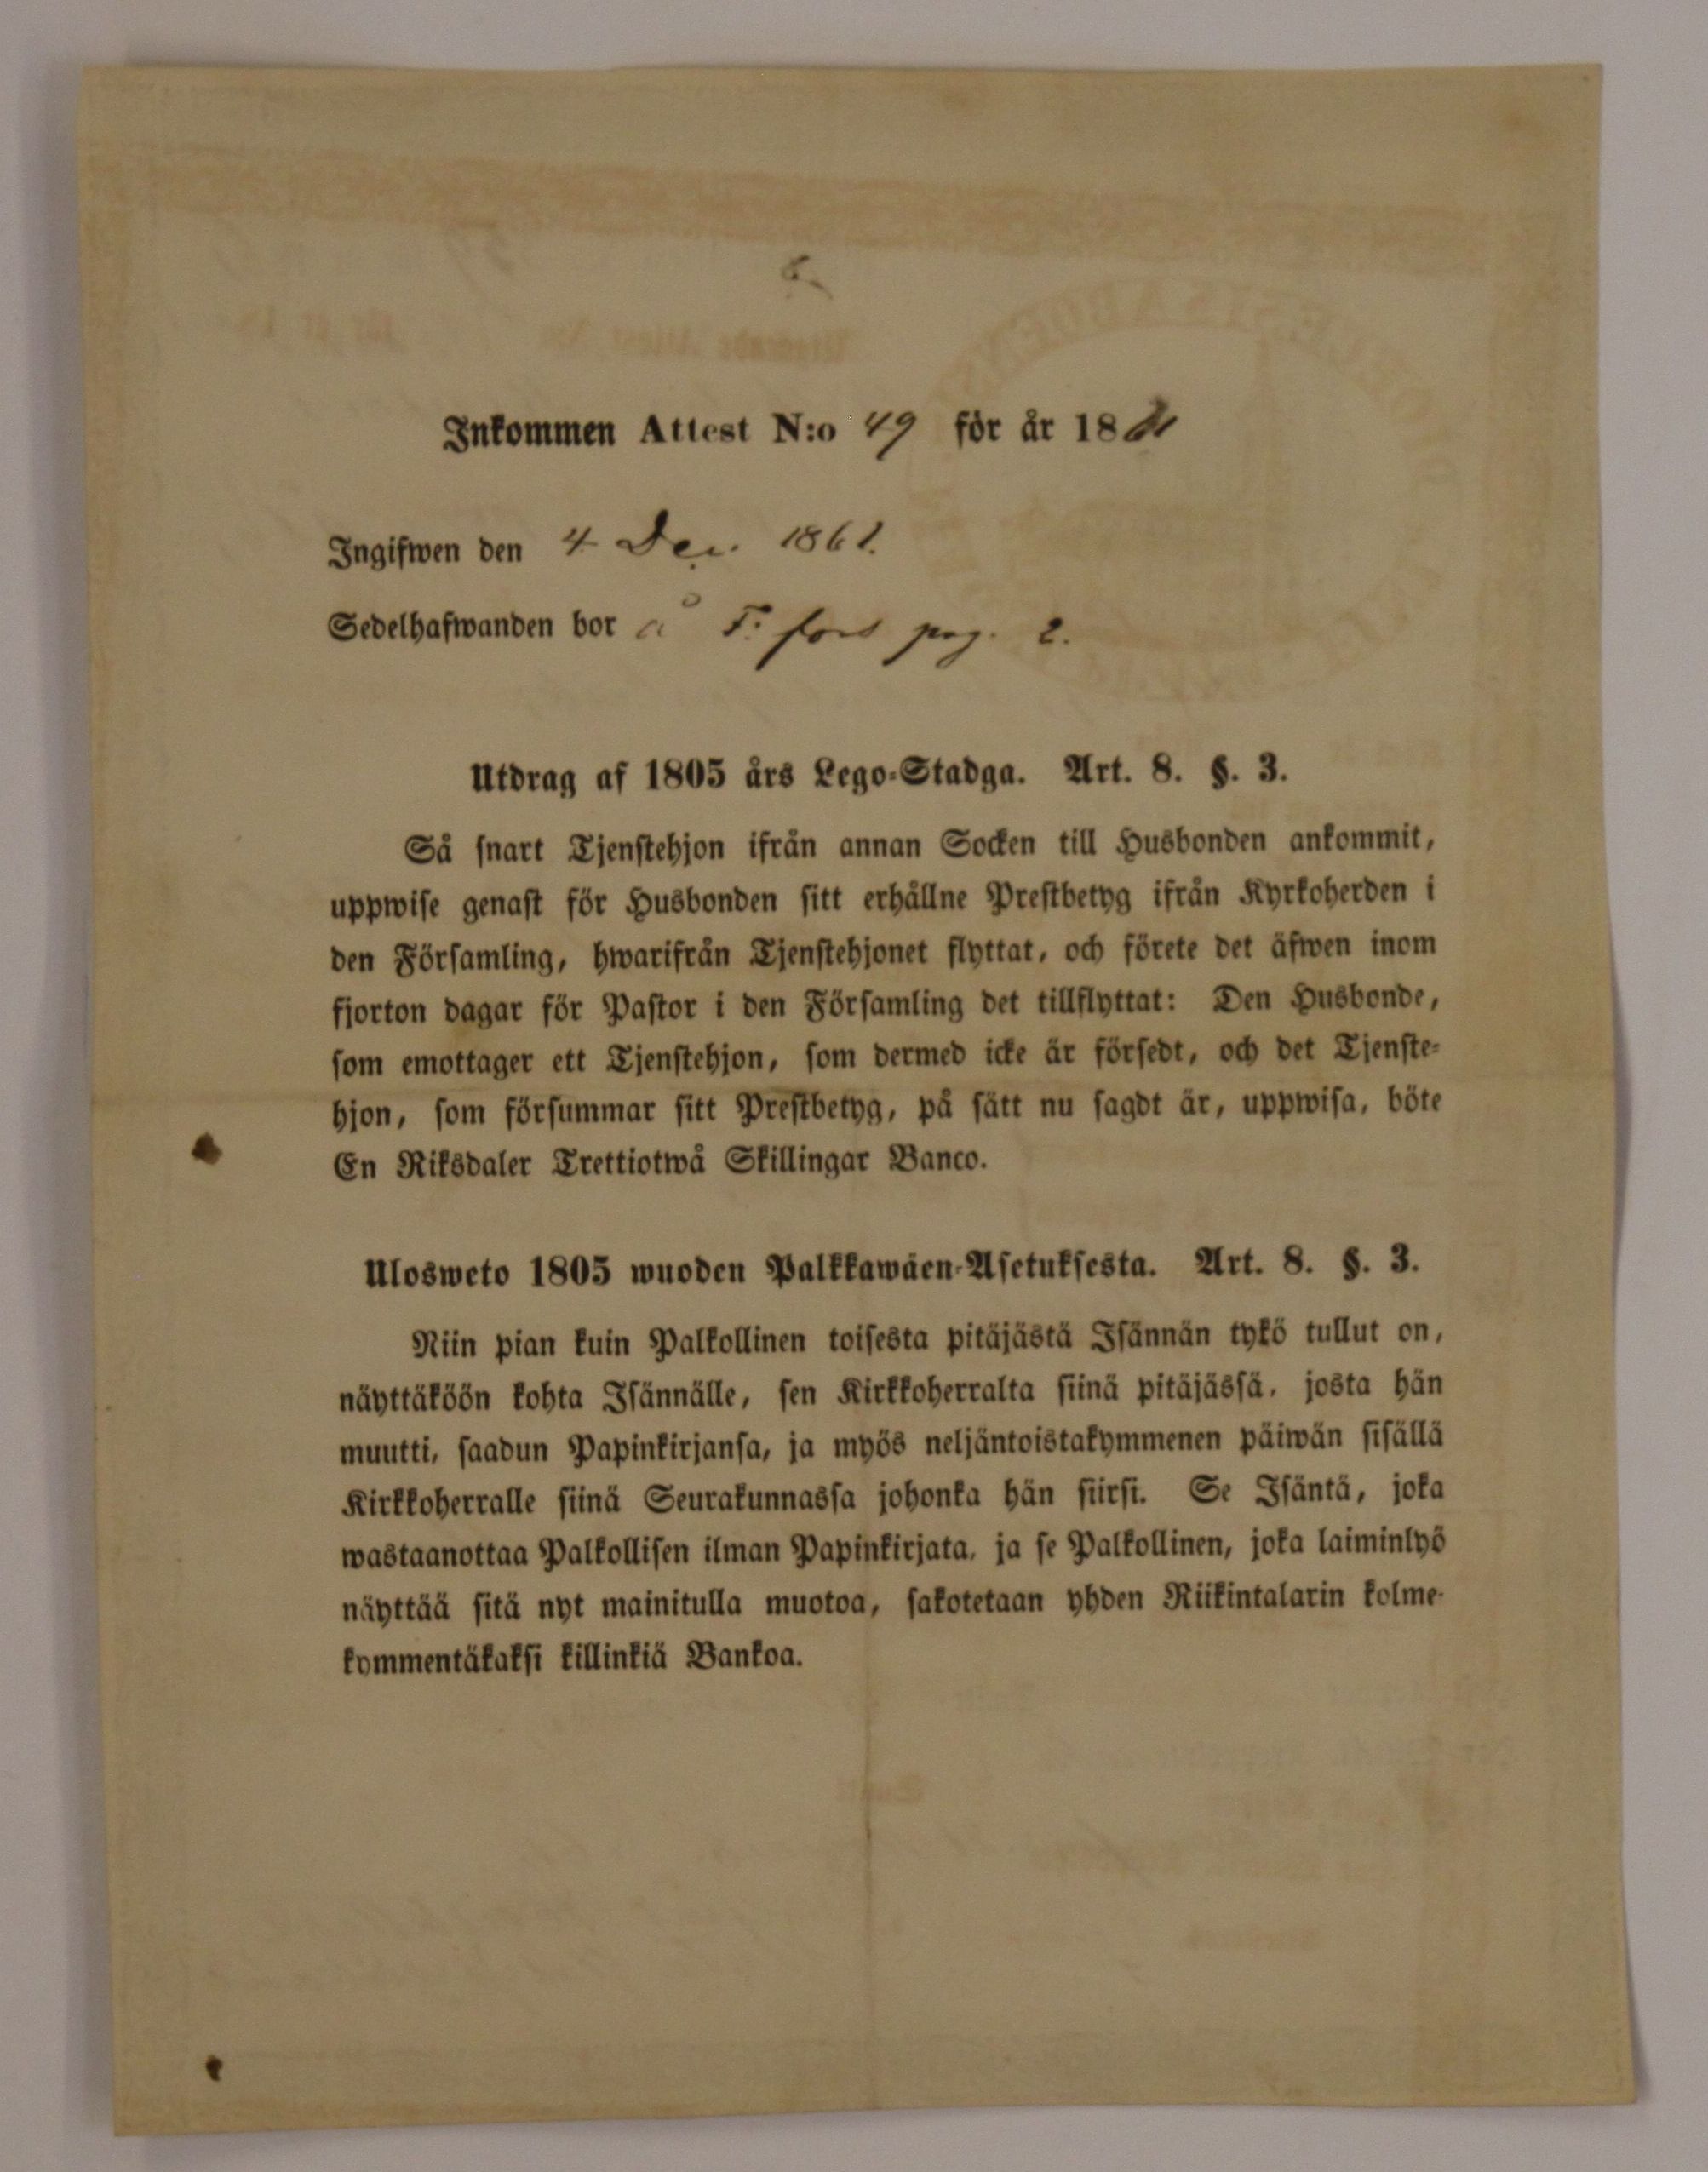 Inkommen Attest N:o 49 för år 1861
Ingifwen den 4 Dec. 1861.
Sedelhafwanden bor å F: fors pag. 2.
Utdrag af 1805 års Lego-Stadga. Art. 8. §. 3.
Så snart Tjenstehjon ifrån annan Socken till Husbonden ankommit,
uppwise genast för Husbonden sitt erhållne Prestbetyg ifrån Kyrkoherden i
den Församling, hwarifrån Tjenstehjonet flyttat, och förete det äfwen inom
fjorton dagar för Pastor i den Församling det tillflyttat: Den Husbonde,
som emottager ett Tjenstehjon, som dermed icke är försedt, och det Tjenste-
hjon, som försummar sitt Prestbetyg, på sätt nu sagdt är, uppwisa, böte
En Riksdaler Trettiotwå Skillingar Banco.
Ulosweto 1805 wuoden Palkkawäen-Asetuksesta. Art. 8. §. 3.
Niin pian kuin Palkollinen toisesta pitäjästä Isännän tykö tullut on,
näyttäköön kohta Isännälle, sen Kirkkoherralta siinä pitäjässä, josta hän
muutti, saadun Papinkirjansa, ja myös neljäntoistakymmenen päiwän sisällä
Kirkkoherralle siinä Seurakunnassa johonka hän siirsi. Se Isäntä, joka
wastaanottaa Palkollisen ilman Papinkirjata, ja se Palkollinen, joka laiminlyö
näyttää sitä nyt mainitulla muotoa, sakotetaan yhden Riikintalarin kolme-
kymmentäkaksi killinkiä Bankoa.